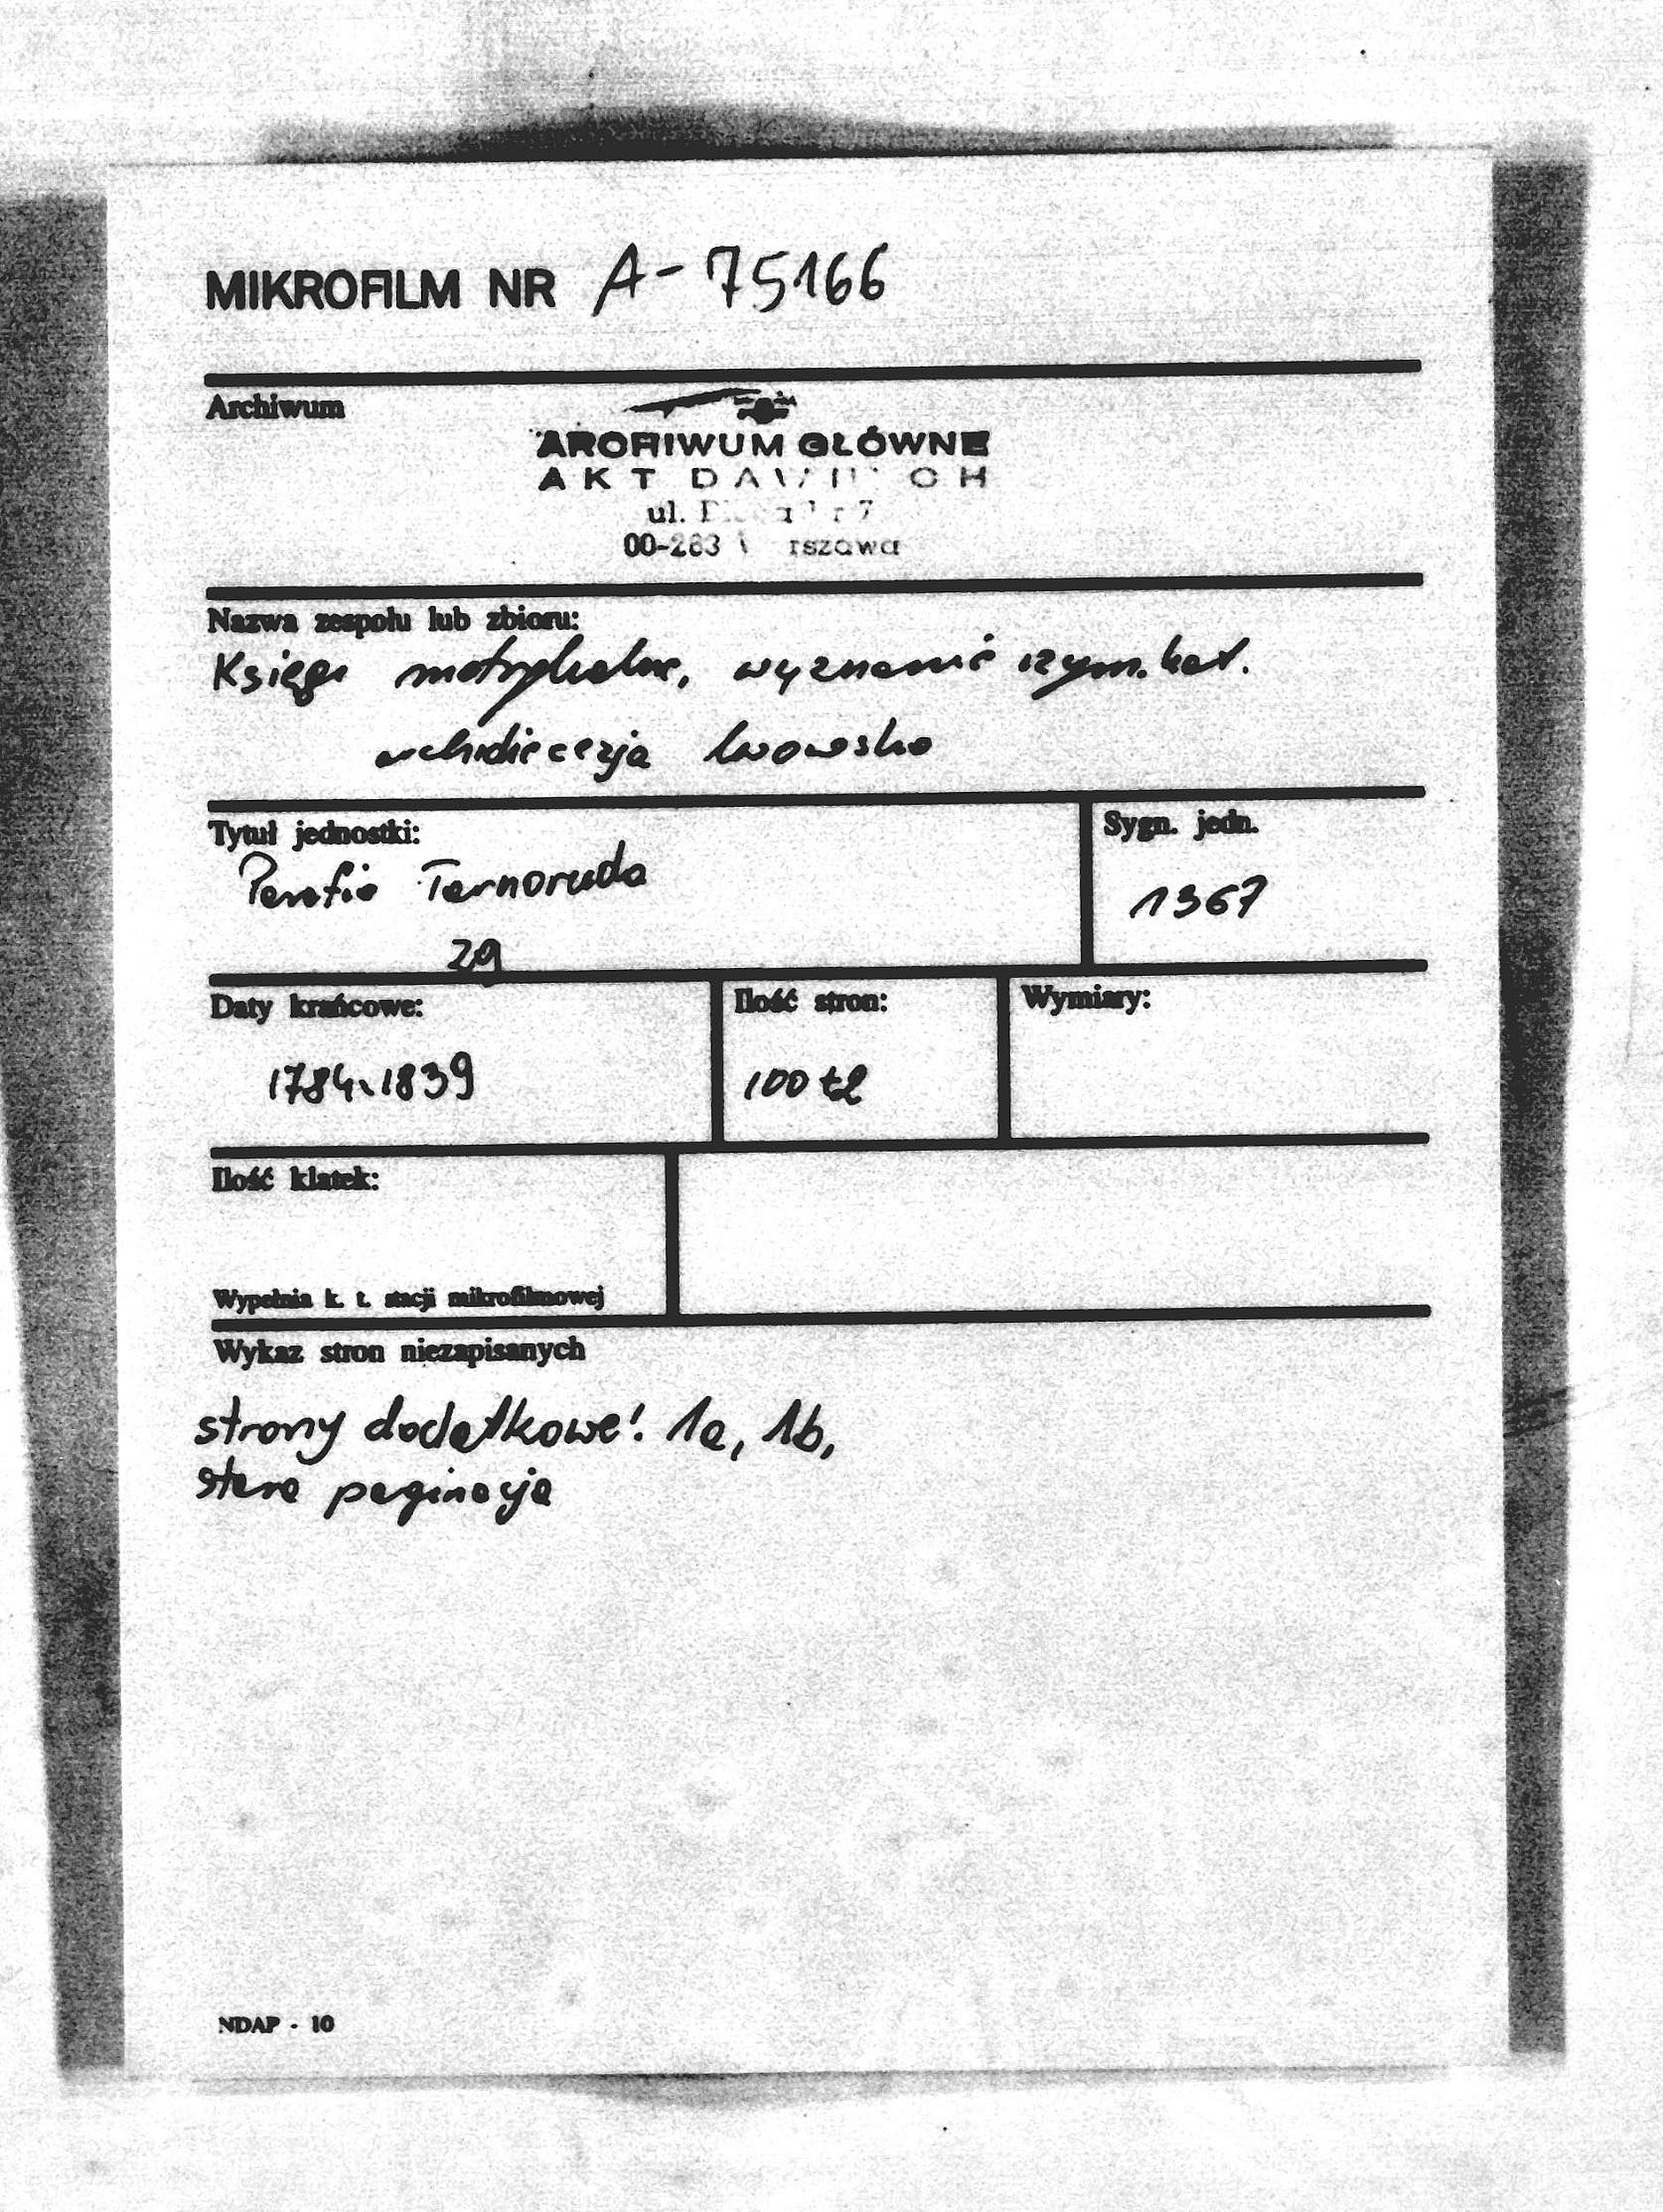 MIKROFILM NR A-75166
Archiwum
ARCHIWUM GŁÓWNE
AKT DAWNYCH
ul. 7
00-263 Warszawa
Nazwa zespołu lub zbioru:
Księgi metrykalne, wyznanie rzym.kat.
archidiecezja lwowska
Tytuł jednostki:
Sygn. jedn.
Parafia Tarnoruda
1367
zg
Daty krańcowe:
Ilość stron:
Wymiary:
1784-1839
100
Ilość klatek:
Wypełnia k. t. stacji mikrofilmowej
Wykaz stron niezapisanych
strony dodatkowe! 1a, 1b,
stara paginacja
NDAP - 10